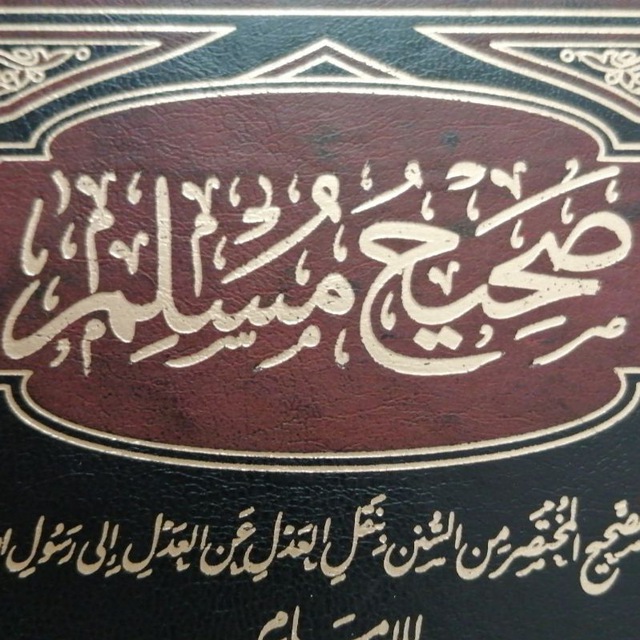 صَحِيحُ مُسْلِم
صَّحِيحُ المُخْتَصَرُ مِنَ السُّنَنِ بِنَقْلِ العَدْلِ عَنِ العَدْلِ إِلَى رَسُولِ
الإمام